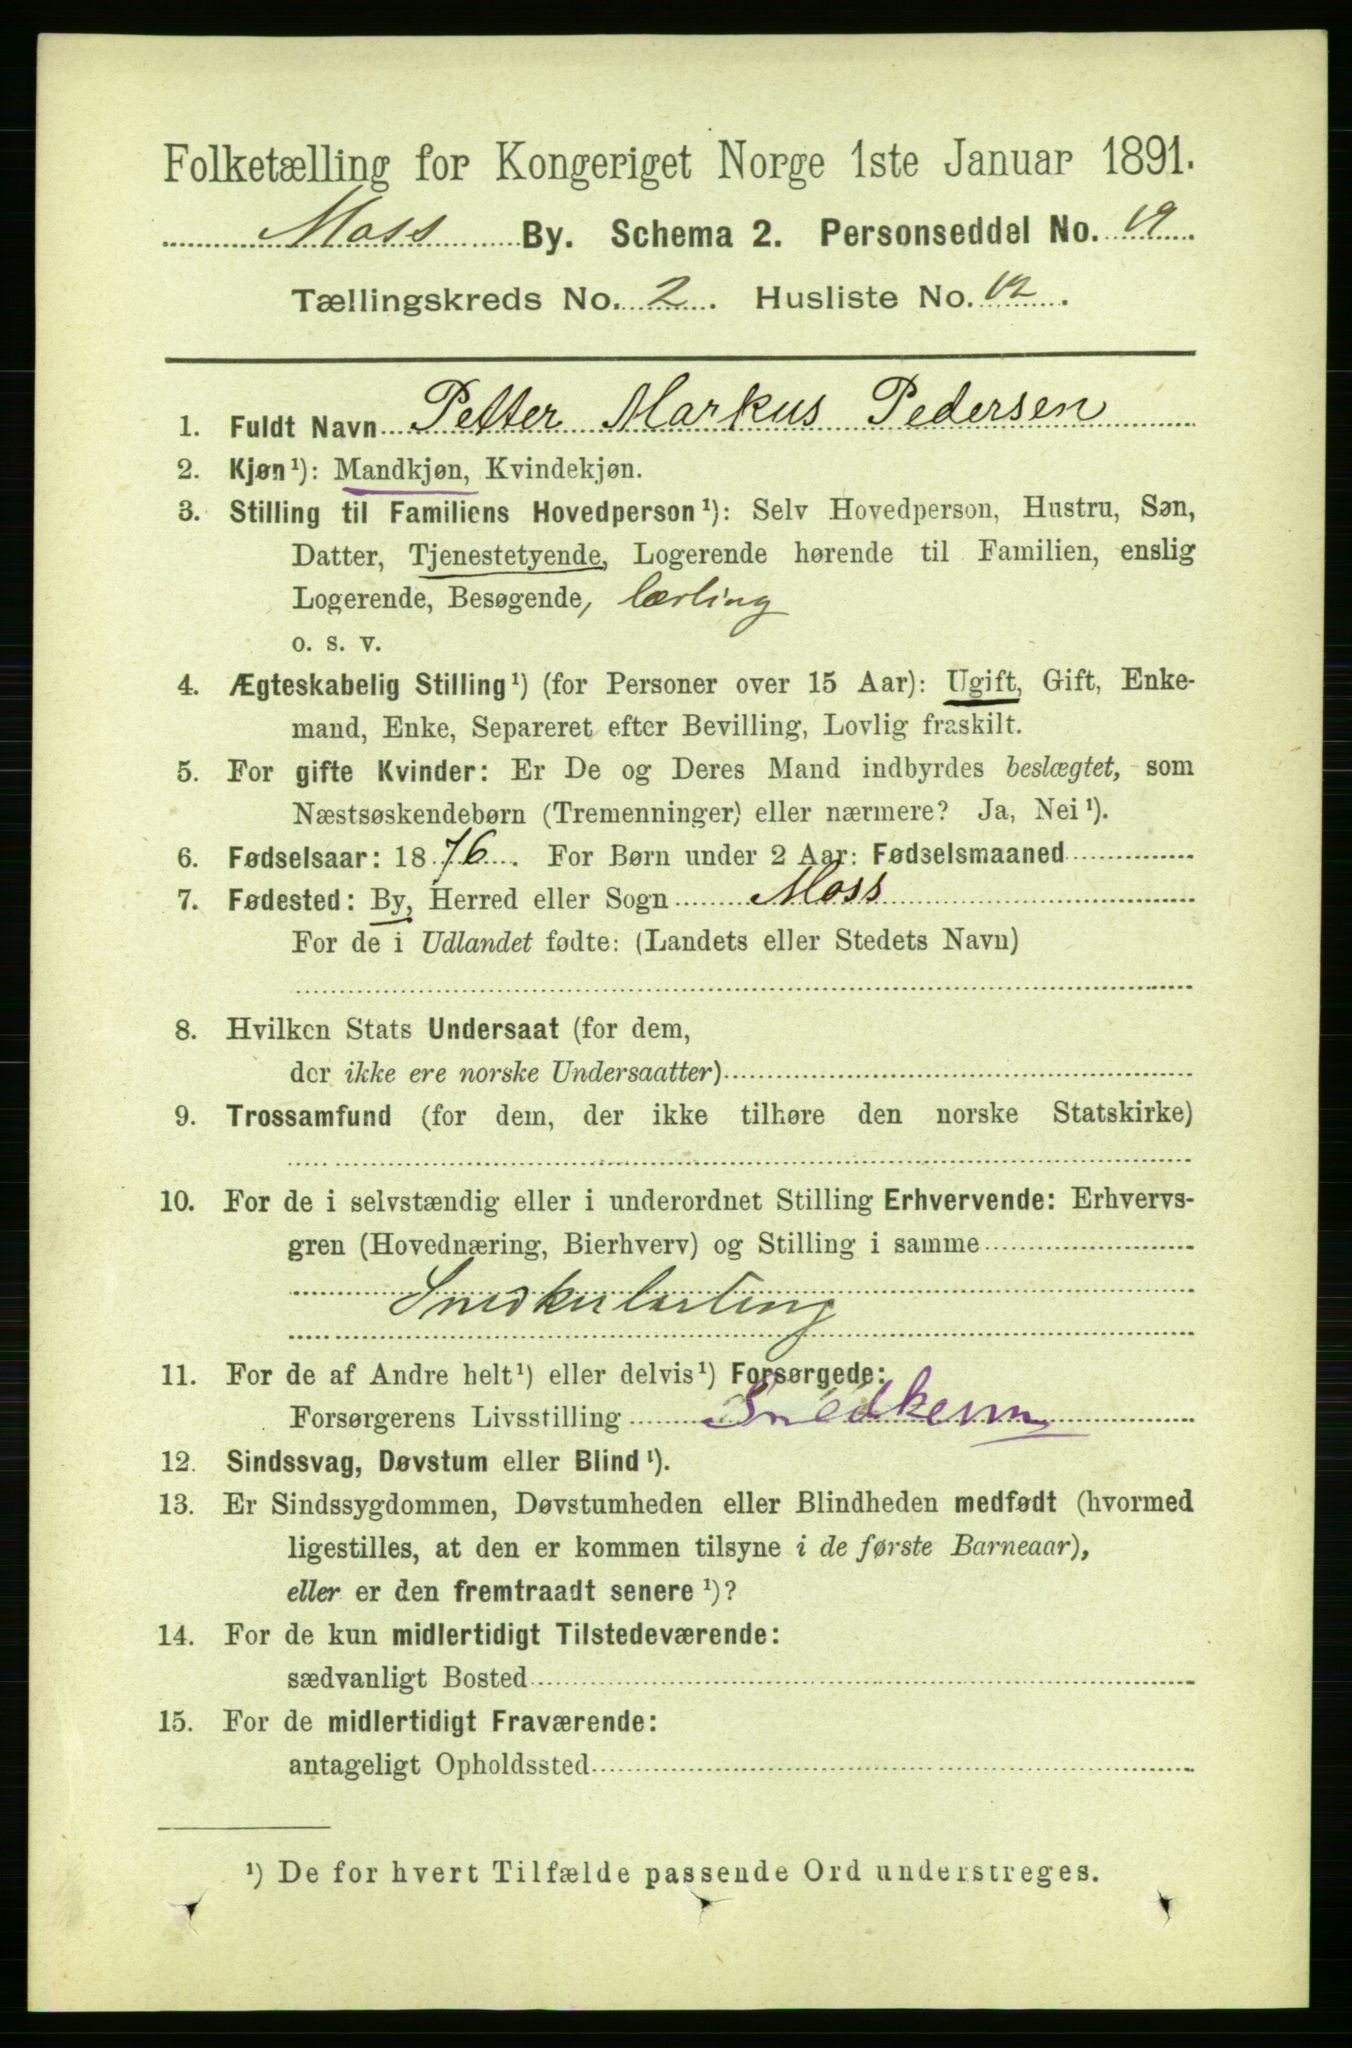 Folketælling for Kongeriget Norge 1ste Januar 1891.
Moss By. Schema 2. Personseddel No. 19.
Tællingskreds No. 2. Husliste No. 12.
1. Fuldt Navn Petter Markus Pedersen
2. Kjøn¹): Mandkjøn, Kvindekjøn.
3. Stilling til Familiens Hovedperson¹): Selv Hovedperson, Hustru, Søn,
Datter, Tjenestetyende, Logerende hørende til Familien, enslig
Logerende, Besøgende, lærling
o. s. v.
4. Ægteskabelig Stilling¹) (for Personer over 15 Aar): Ugift, Gift, Enke-
mand, Enke, Separeret efter Bevilling, Lovlig fraskilt.
5. For gifte Kvinder: Er De og Deres Mand indbyrdes beslægtet, som
Næstsøskendebørn (Tremenninger) eller nærmere? Ja, Nei¹).
6. Fødselsaar: 1876. For Børn under 2 Aar: Fødselsmaaned
7. Fødested: By, Herred eller Sogn Moss
For de i Udlandet fødte: (Landets eller Stedets Navn)
8. Hvilken Stats Undersaat (for dem,
der ikke ere norske Undersaatter)
9. Trossamfund (for dem, der ikke tilhøre den norske Statskirke)
10. For de i selvstændig eller i underordnet Stilling Erhvervende: Erhvervs-
gren (Hovednæring, Bierhverv) og Stilling i samme
Snedkerlærling
11. For de af Andre helt¹) eller delvis¹) Forsørgede:
Forsørgerens Livsstilling
12. Sindssvag, Døvstum eller Blind¹).
13. Er Sindssygdommen, Døvstumheden eller Blindheden medfødt (hvormed
ligestilles, at den er kommen tilsyne i de første Barneaar),
eller er den fremtraadt senere¹)?
14. For de kun midlertidigt Tilstedeværende:
sædvanligt Bosted
15. For de midlertidigt Fraværende:
antageligt Opholdssted
¹) De for hvert Tilfælde passende Ord understreges.